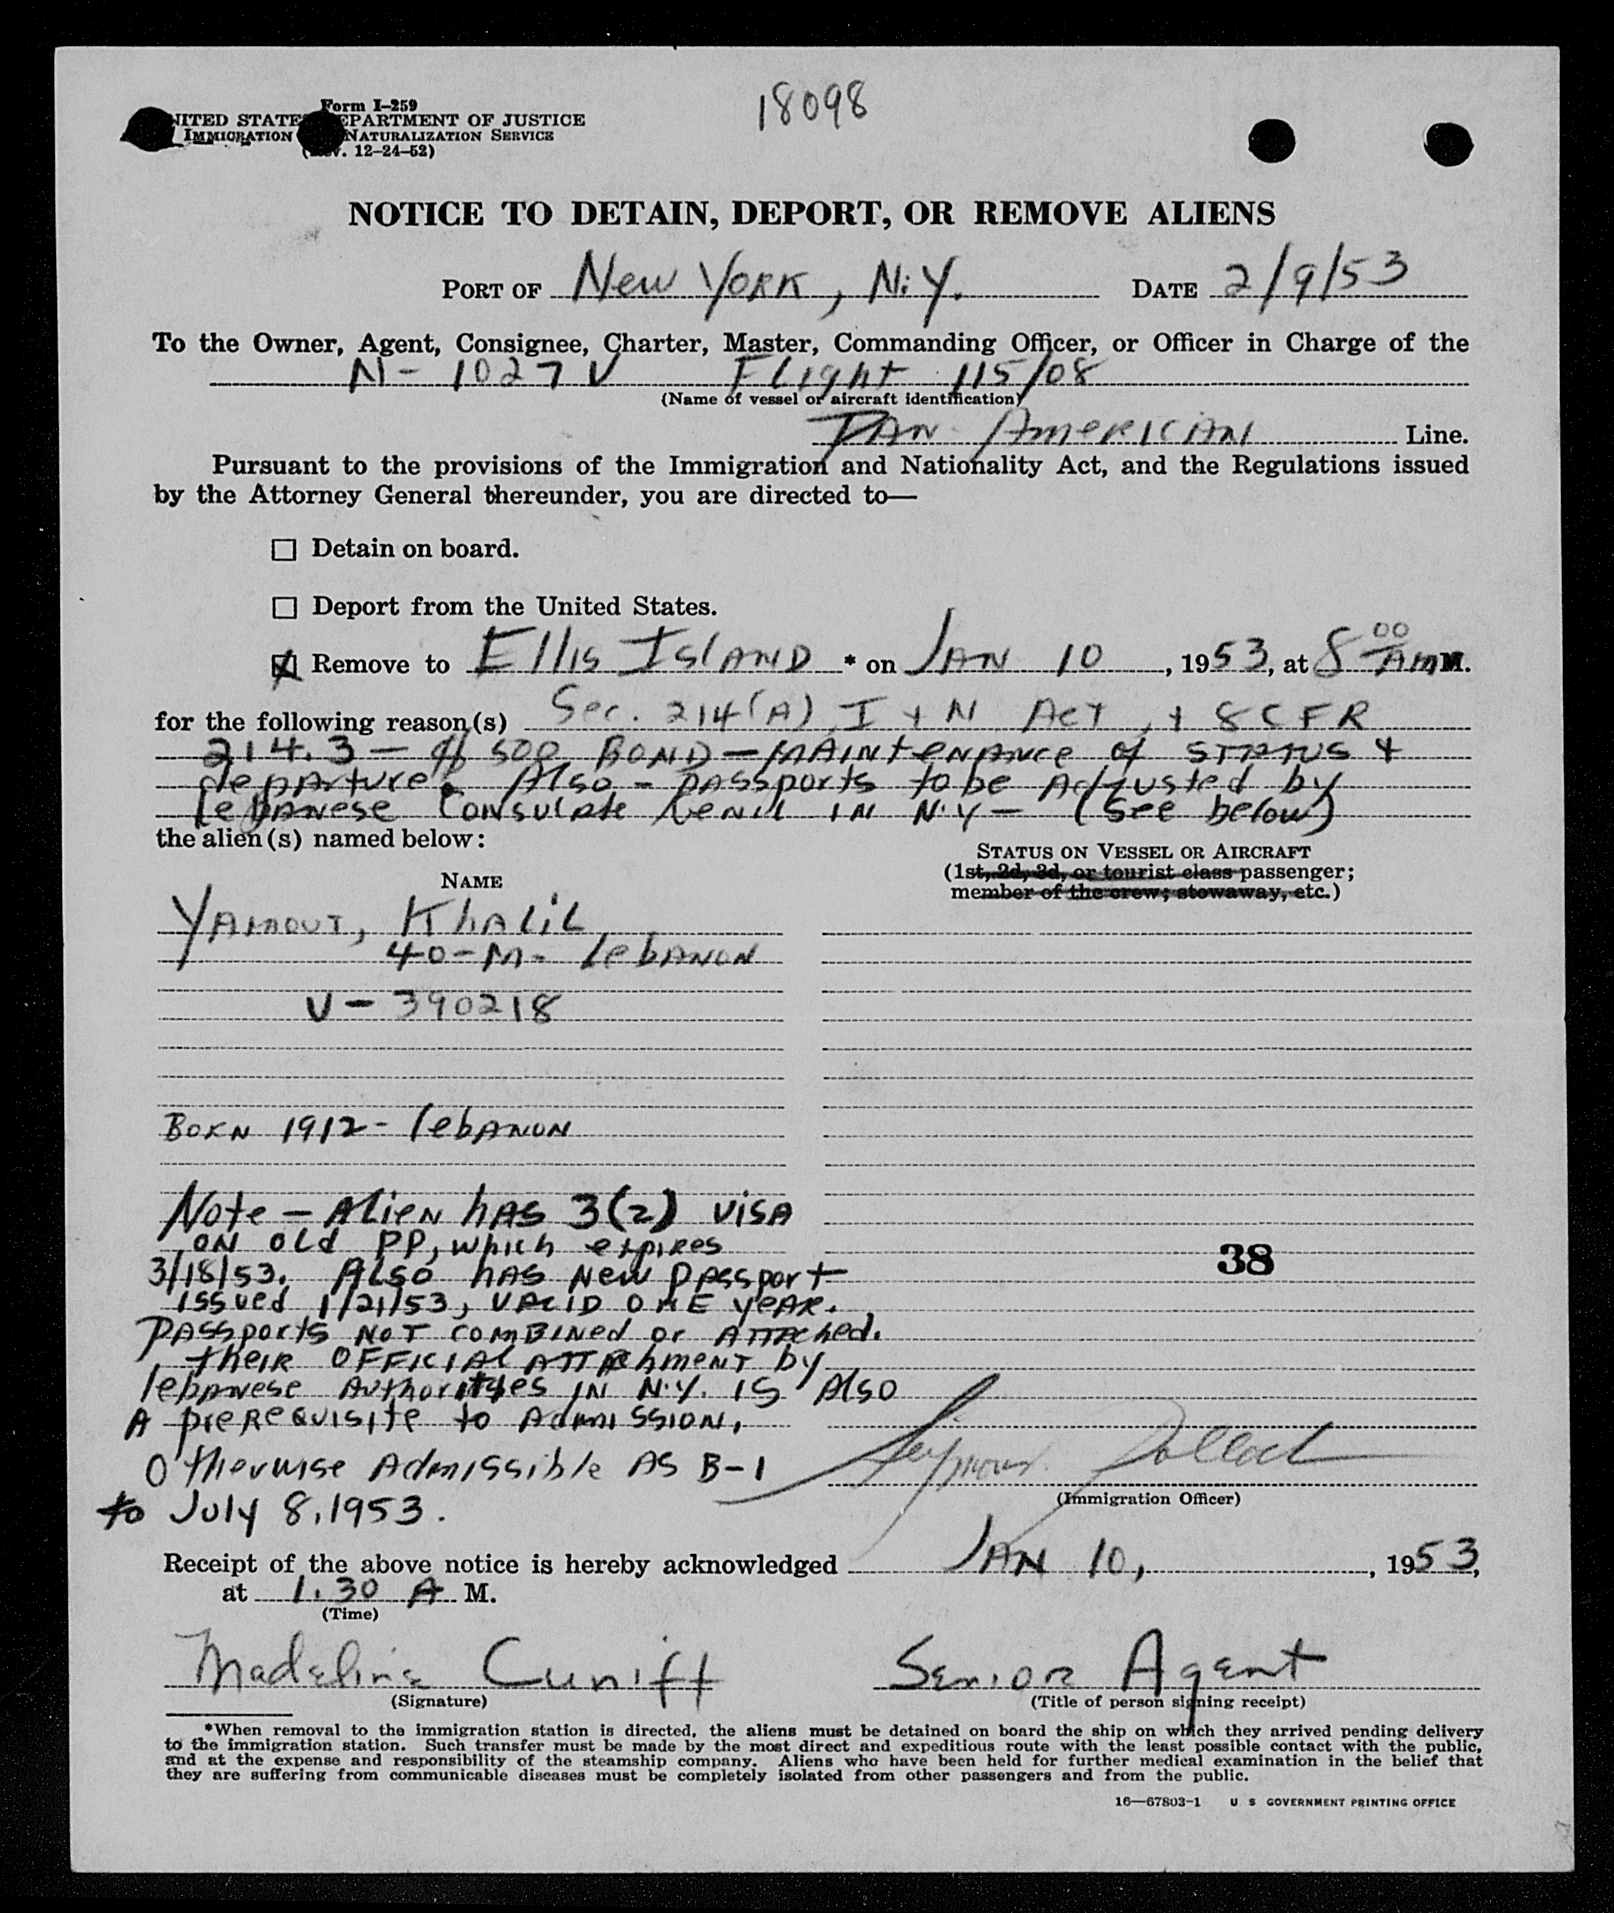 18098
Form I-259
UNITED STATES DEPARTMENT OF JUSTICE
IMMIGRATION NATURALIZATION SERVICE
(Rev. 12-24-52)
NOTICE TO DETAIN, DEPORT, OR REMOVE ALIENS
PORT OF New York, N.Y. DATE 2/9/53
To the Owner, Agent, Consignee, Charter, Master, Commanding Officer, or Officer in Charge of the
N-1027V Flight 115/08
(Name of vessel or aircraft identification)
PAN AMERICAN Line.
Pursuant to the provisions of the Immigration and Nationality Act, and the Regulations issued
by the Attorney General thereunder, you are directed to—
Detain on board.
Deport from the United States.
Remove to Ellis Island * on JAN 10, 1953, at 8 00 AM M.
for the following reason(s) Sec. 214(A) I + N Act, + 8 CFR
214.3 — $500 BOND — MAINTENANCE of STATUS +
departure. Also - passports to be Adjusted by
lebanese Consulate Genil in N.Y — (See below)
the alien(s) named below:
STATUS ON VESSEL OR AIRCRAFT
(1st, 2d, 3d, or tourist class passenger;
member of the crew; stowaway, etc.)
NAME
YAMOUT, KhALIL
40-M. lebanon
V-390218
BORN 1912 - lebanon
Note — Alien has 3(2) visa
on old PP, which expires
3/18/53. Also has new passport
38
issued 1/21/53, valid one year.
Passports not combined or attached.
their official attachment by
lebanese Authorities in N.Y. is also
A prerequisite to admission.
Otherwise Admissible AS B-1
to July 8, 1953.
Seymour Pollock
(Immigration Officer)
Receipt of the above notice is hereby acknowledged JAN 10, 1953,
at 1.30 A M.
(Time)
Madeline Cuniff Senior Agent
(Signature) (Title of person signing receipt)
*When removal to the immigration station is directed, the aliens must be detained on board the ship on which they arrived pending delivery
to the immigration station. Such transfer must be made by the most direct and expeditious route with the least possible contact with the public,
and at the expense and responsibility of the steamship company. Aliens who have been held for further medical examination in the belief that
they are suffering from communicable diseases must be completely isolated from other passengers and from the public.
16—67803-1 U S GOVERNMENT PRINTING OFFICE